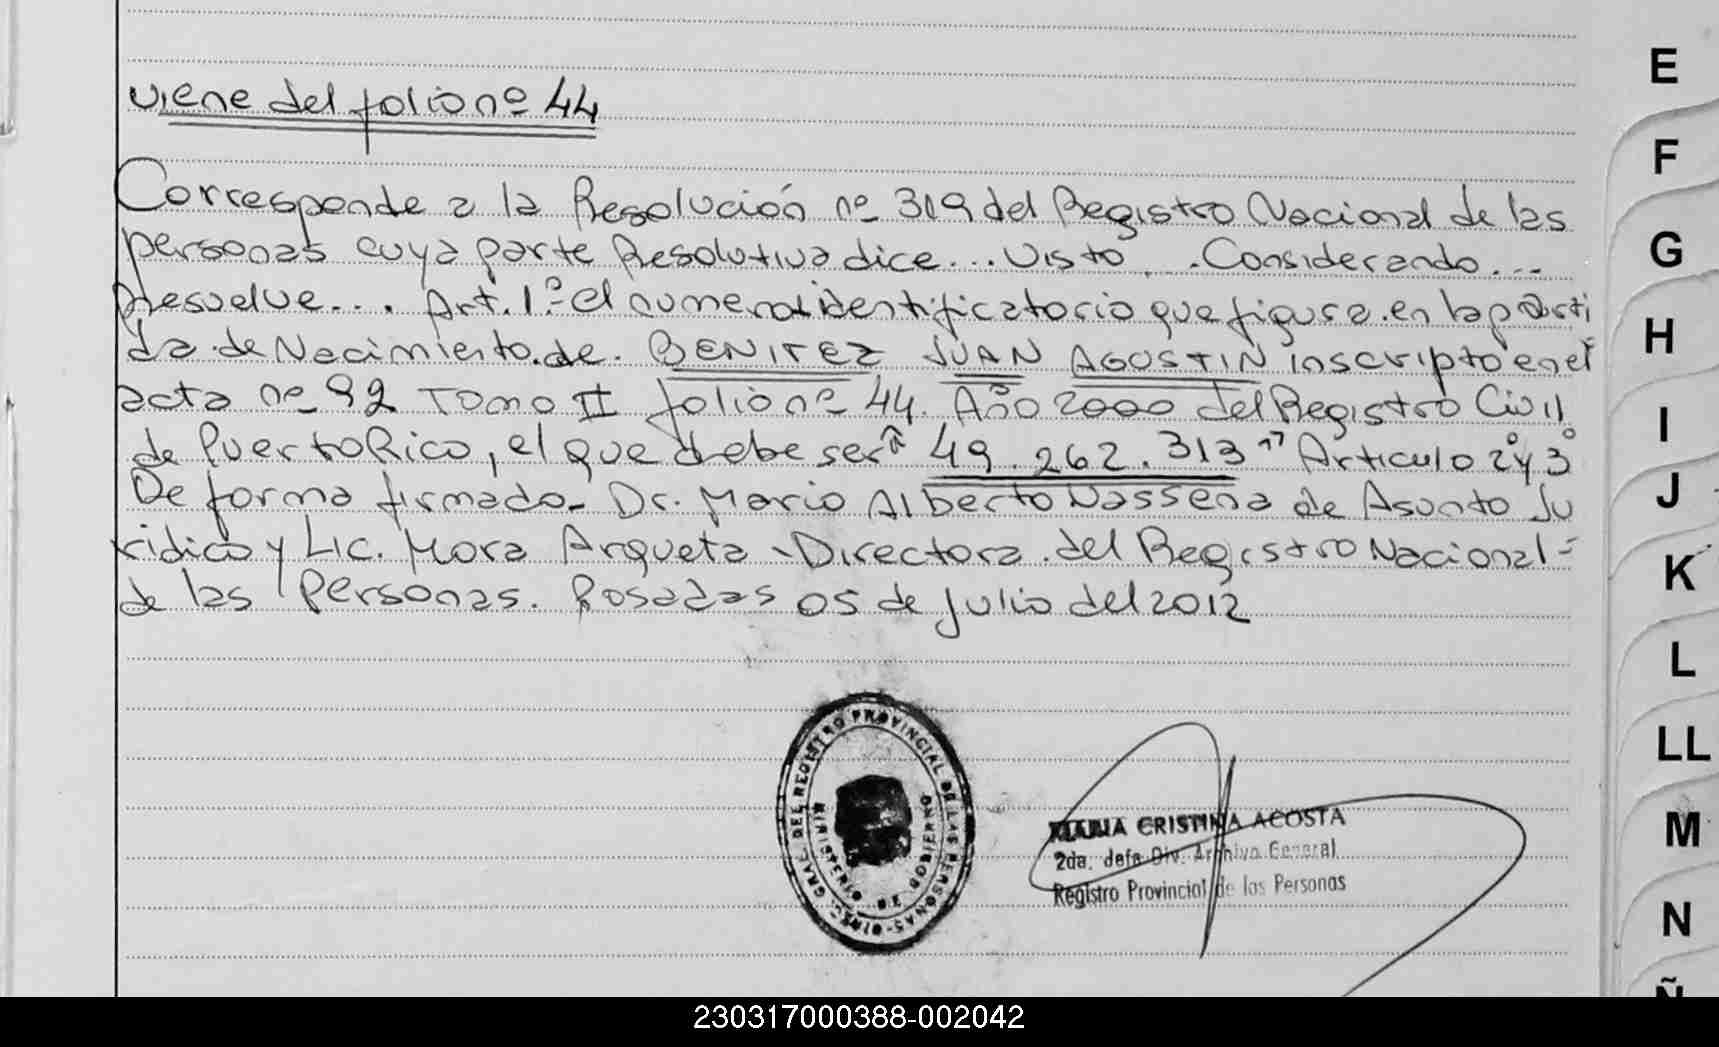 viene del folio nº 44
Corresponde a la Resolución nº 319 del Registro Nacional de las
personas cuya parte Resolutiva dice... Visto... Considerando...
Resuelve... Art. 1º el numeral identificatorio que figura en la parti
da de Nacimiento de BENITEZ JUAN AGUSTIN inscripto en el
acta nº 92 Tomo II folio nº 44. Año 2000 del Registro Civil
de Puerto Rico, el que debe ser "49.262.313" Articulo 2º y 3º
De forma firmado- Dr. Mario Alberto de Asunto Ju
ridico y Lic. Mora Arqueta - Directora del Registro Nacional-
de las Personas. Posadas 05 de Julio del 2012
DIREC. GRAL. DEL REGISTRO PROVINCIAL DE LAS PERSONAS
MINISTERIO DE GOBIERNO
MARIA CRISTINA ACOSTA
2da. Jefa Div. Archivo General
Registro Provincial de las Personas
E
F
G
H
I
J
K
L
LL
M
N
Ñ
230317000388-002042